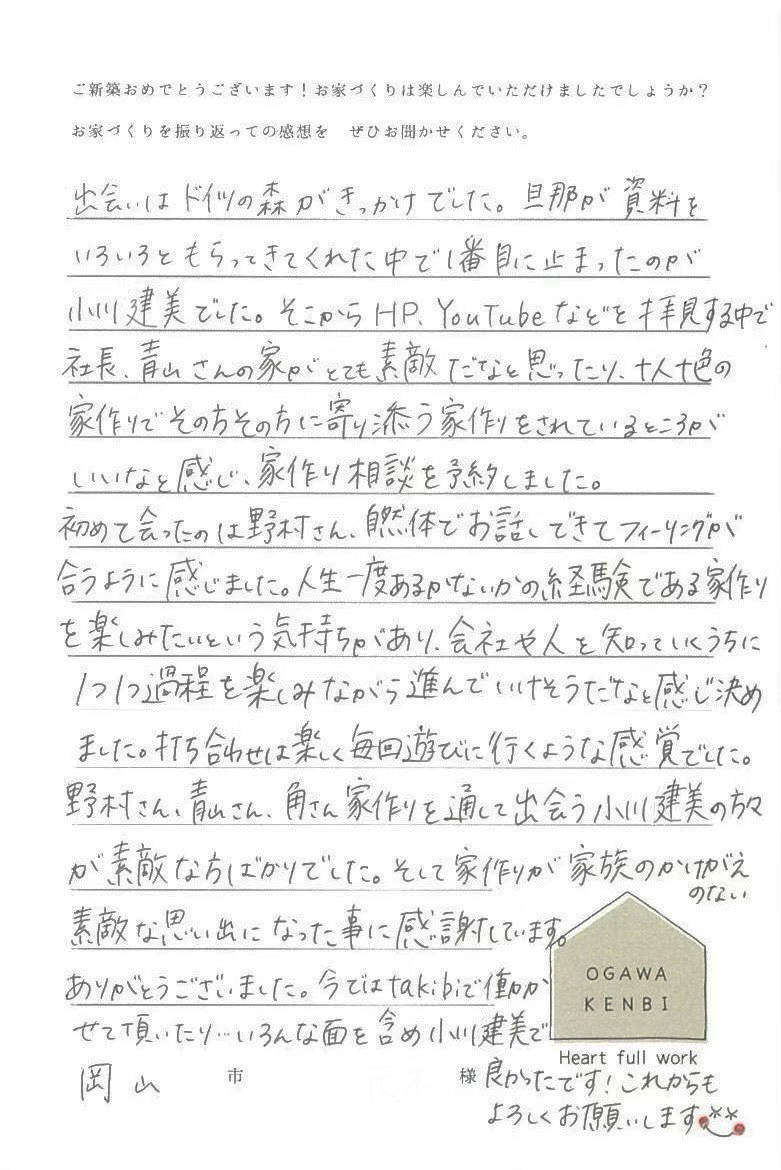 ご新築おめでとうございます！お家づくりは楽しんでいただけましたでしょうか？
お家づくりを振り返っての感想を　ぜひお聞かせください。
出会いはドイツの森がきっかけでした。旦那が資料を
いろいろともらってきてくれた中で1番目に止まったのが
小川建美でした。そこからHP、YouTubeなどを拝見する中で
社長、青山さんの家がとても素敵だなと思ったり、十人十色の
家作りでその方その方に寄り添う家作りをされているところが
いいなと感じ、家作り相談を予約しました。
初めて会ったのは野村さん、自然体でお話しできてフィーリングが
合うように感じました。人生一度あるかないかの経験である家作り
を楽しみたいという気持ちがあり、会社や人を知っていくうちに
1つ1つ過程を楽しみながら進んでいけそうだなと感じ決め
ました。打ち合わせは楽しく毎回遊びに行くような感覚でした。
野村さん、青山さん、角さん家作りを通して出会う小川建美の方々
が素敵な方ばかりでした。そして家作りが家族のかけがえ
のない
素敵な思い出になった事に感謝しています。
ありがとうございました。今ではtakibiで働か
せて頂いたり…いろんな面を含め小川建美で
良かったです！これからも
よろしくお願いします
OGAWA
KENBI
Heart full work
岡山　市　様